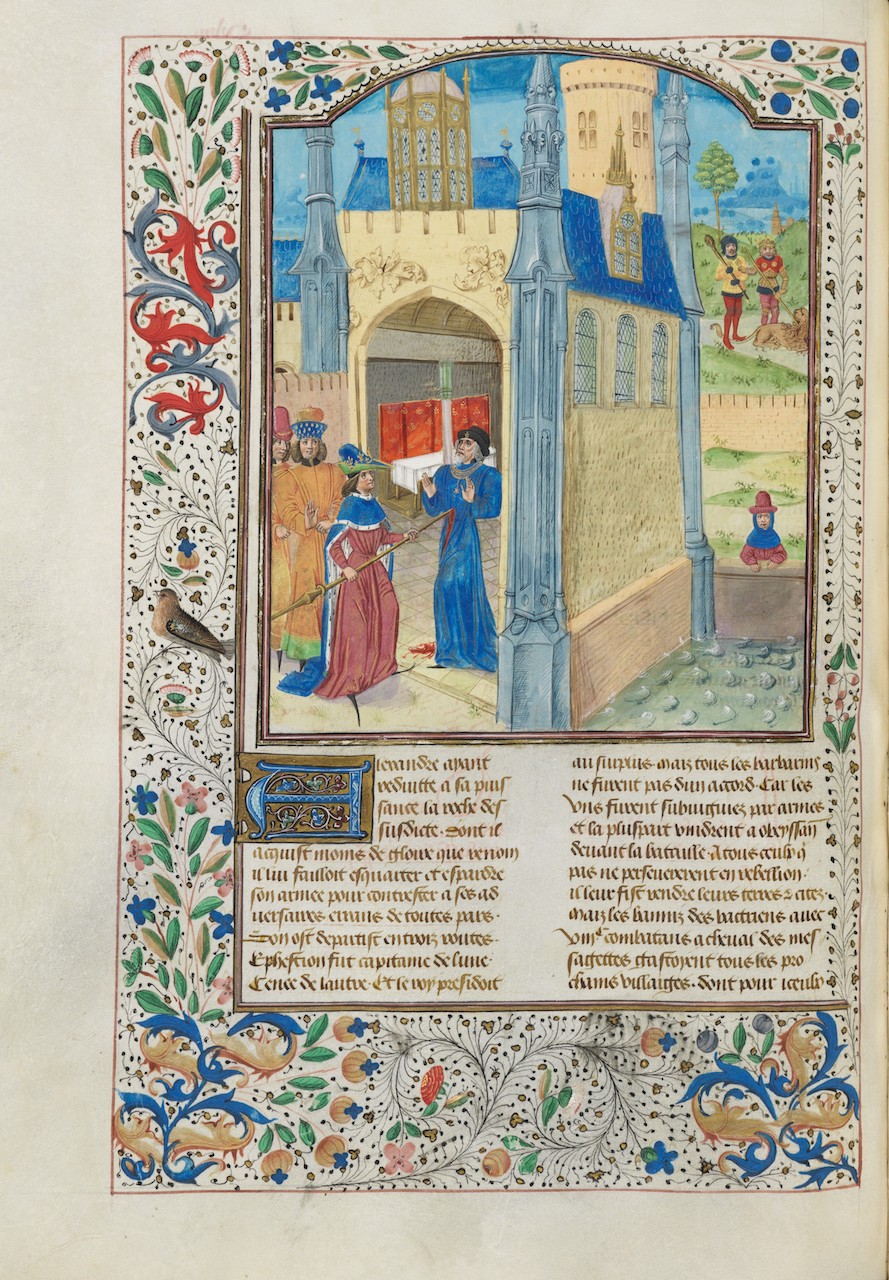 Alexandre ayant
reduitte a sa puis
sance la roche des
susdicte. dont il
acquist moins de gloire que renom
il lui failloit esquarter et espardre
son armee pour contrester a ses ad
uersaires errans de toutes pars.
Son ost departist en troiz routes.
Ephestion fut capitaine de lune
Cenee de lautre. Et le roy presidoit
au surplus. maiz tous les barbarins
ne furent pas dun accord. Car les
vns furent subiuguiez par armes
et la pluspart vindrent a obeyssan
deuant la bataille. A tous ceulx q̄
pas ne perseuererent en rebellion.
il leur fist rendre leurs terres & citez.
maiz les banniz des bactriens auec
viiiᶜ combatans a cheual des mes
sagettes gastoyent tous les pro
chains villaiges. dont pour iceulx